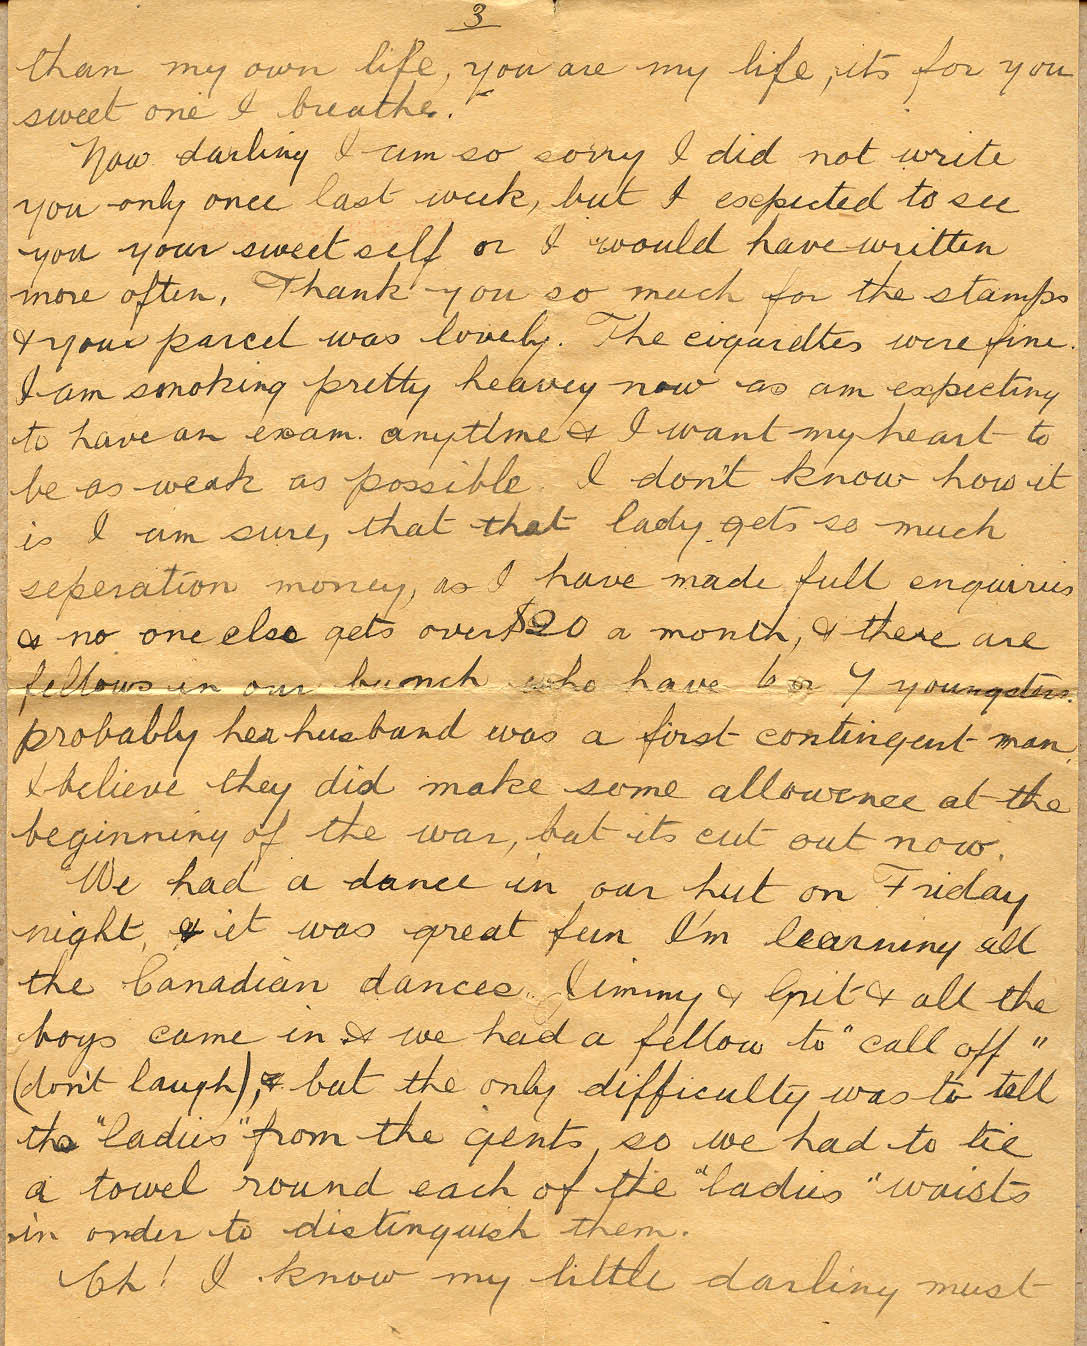 3
than my own life, you are my life, its for you
sweet one I breathe."
Now darling I am so sorry I did not write
you only once last week, but I expected to see
you your sweet self or I would have written
more often. Thank you so much for the stamps
& your parcel was lovely. The cigarettes were fine.
I am smoking pretty heavey now as am expecting
to have an exam. anytime & I want my heart to
be as weak as possible. I don't know how it
is I am sure, that that lady gets so much
seperation money, as I have made full enquiries
& no one else gets over $20 a month, & there are
fellows in our bunch who have 6 or 7 youngsters.
probably her husband was a first contingent man,
I believe they did make some allowence at the
beginning of the war, but its cut out now.
We had a dance in our hut on Friday
night, & it was great fun I'm learning all
the Canadian dances. Jimmy & Grit & all the
boys came in & we had a fellow to "call off"
(don't laugh), & but the only difficulty was to tell
the "ladies" from the gents, so we had to tie
a towel round each of the "ladies" waists
in order to distinguish them.
Eh! I know my little darling must